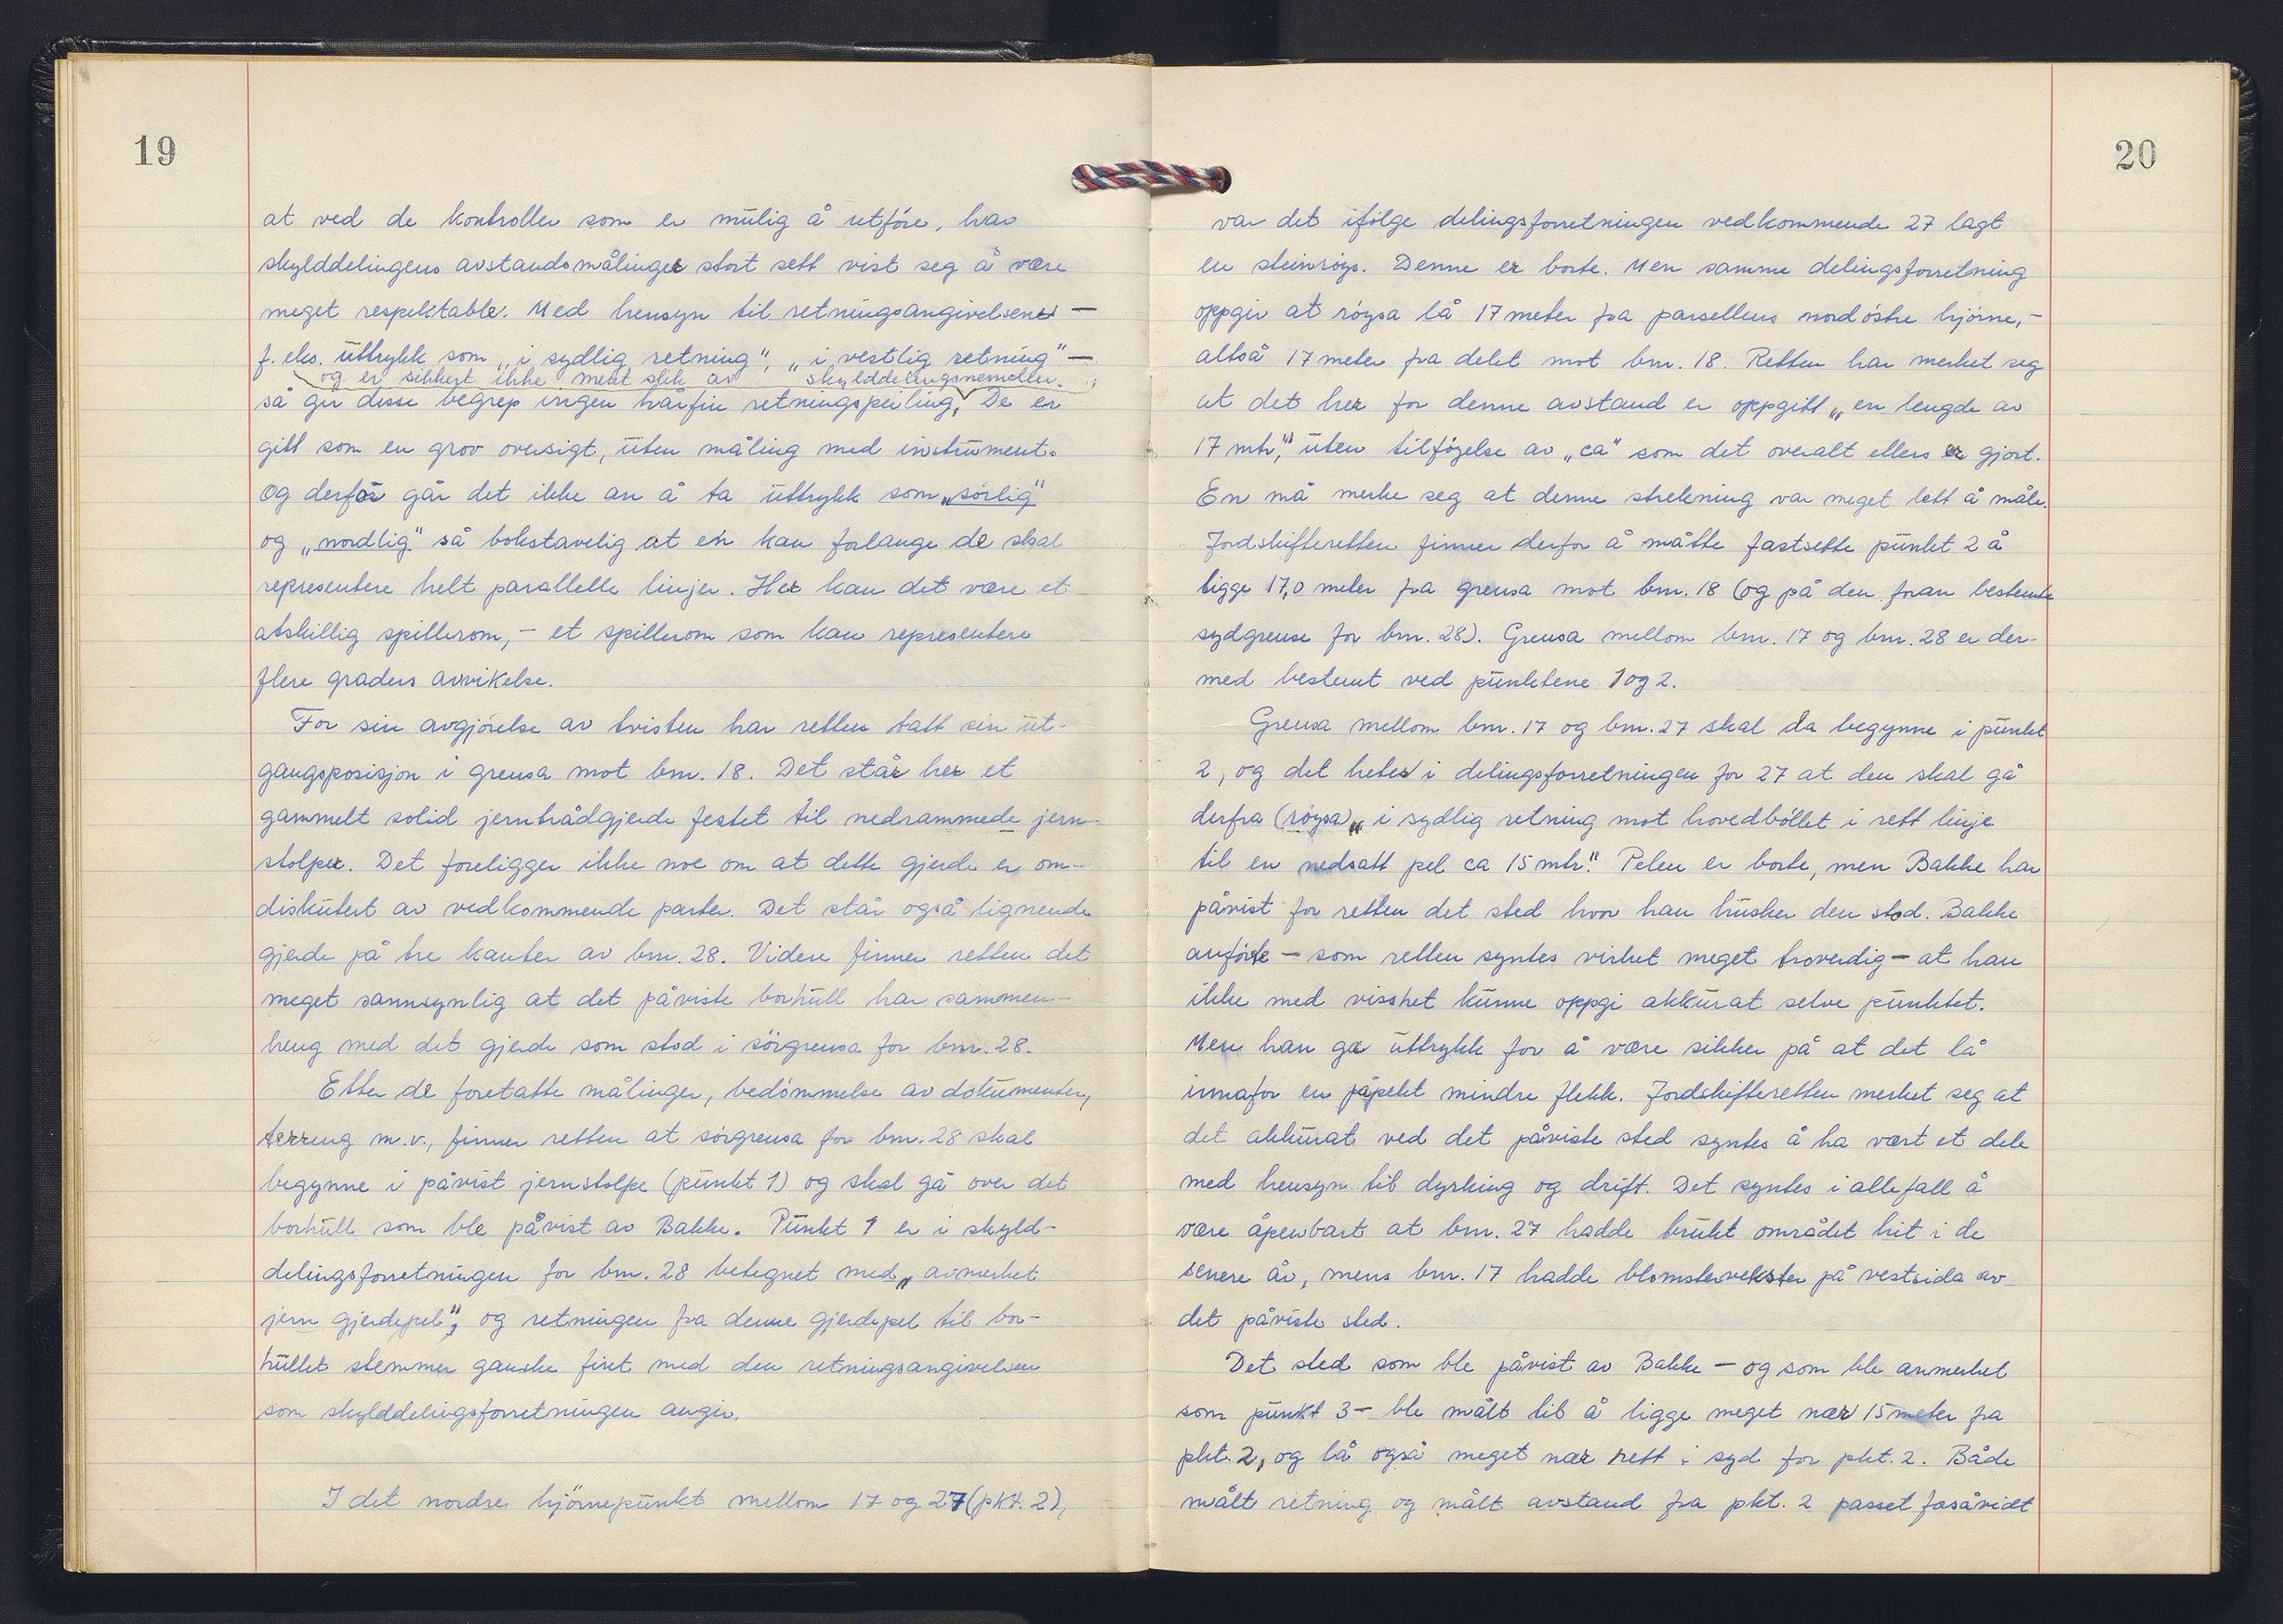 19
at ved de kontroller som er mulig å utföre, har
skylddelingens avstandsmålinger stort sett vist seg å være
meget respektable. Med hensyn til retningsangivelsene —
f. eks. uttrykk som „i sydlig retning", „i vestlig retning" —
og er sikkert ikke ment slik av skylddelingsnemnden.
så gir disse begrep ingen hårfin retningspeiling, De er
gitt som en grov oversigt, uten måling med instrument.
Og derfor går det ikke an å ta uttrykk som „sörlig"
og „nordlig" så bokstavelig at en kan forlange de skal
representere helt parallelle linjer. Her kan det være et
atskillig spillerom, - et spillerom som kan representere
flere graders avvikelse.
For sin avgjörelse av tvisten har retten tatt sin ut-
gangsposisjon i grensa mot bnr. 18. Det står her et
gammelt solid jerntrådgjerde festet til nedrammede jern-
stolper. Det foreligger ikke noe om at dette gjerde er om-
diskutert av vedkommende parter. Det står også lignende
gjerde på tre kanter av bnr. 28. Videre finner retten det
meget sannsynlig at det påviste borhull har sammen-
heng med det gjerde som stod i sörgrensa for bnr. 28.
Etter de foretatte målinger, bedömmelse av dokumenter,
terreng m.v., finner retten at sörgrensa for bnr. 28 skal
begynne i påvist jernstolpe (punkt 1) og skal gå over det
borhull som ble påvist av Bakke. Punkt 1 er i skyld-
delingsforretningen for bnr. 28 betegnet med „avmerket
jern gjerdepel", og retningen fra denne gjerdepel til bor-
hullet stemmer ganske fint med den retningsangivelsen
som skylddelingsforretningen angir.
I det nordre hjörnepunkt mellom 17 og 27 (pkt. 2),
20
var det ifölge delingsforretningen vedkommende 27 lagt
en steinröys. Denne er borte. Men samme delingsforretning
oppgir at röysa lå 17 meter fra parsellens nordöstre hjörne, -
altså 17 meter fra delet mot bnr. 18. Retten har merket seg
at det her for denne avstand er oppgitt „en lengde av
17 mtr", uten tilföyelse av „ca" som det overalt ellers er gjort.
En må merke seg at denne strekning var meget lett å måle.
Jordskifteretten finner derfor å måtte fastsette punkt 2 å
ligge 17,0 meter fra grensa mot bnr. 18 (og på den foran bestemte
sydgrense for bnr. 28). Grensa mellom bnr. 17 og bnr. 28 er der-
med bestemt ved punktene 1 og 2.
Grensa mellom bnr. 17 og bnr. 27 skal da begynne i punkt
2, og det heter i delingsforretningen for 27 at den skal gå
derfra (röysa) „i sydlig retning mot hovedböllet i rett linje
til en nedsatt pel ca 15 mtr." Pelen er borte, men Bakke har
påvist for retten det sted hvor han husker den stod. Bakke
anförte — som retten syntes virket meget troverdig — at han
ikke med visshet kunne oppgi akkurat selve punktet.
Men han ga uttrykk for å være sikker på at det lå
innafor en påpekt mindre flekk. Jordskifteretten merket seg at
det akkurat ved det påviste sted syntes å ha vært et dele
med hensyn til dyrking og drift. Det syntes i allefall å
være åpenbart at bnr. 27 hadde brukt området hit i de
senere år, mens bnr. 17 hadde blomstervekster på vestsida av
det påviste sted.
Det sted som ble påvist av Bakke — og som ble anmerket
som punkt 3 — ble målt til å ligge meget nær 15 meter fra
pkt. 2, og lå også meget nær rett i syd for pkt. 2. Både
målt retning og målt avstand fra pkt. 2 passet forsåvidt